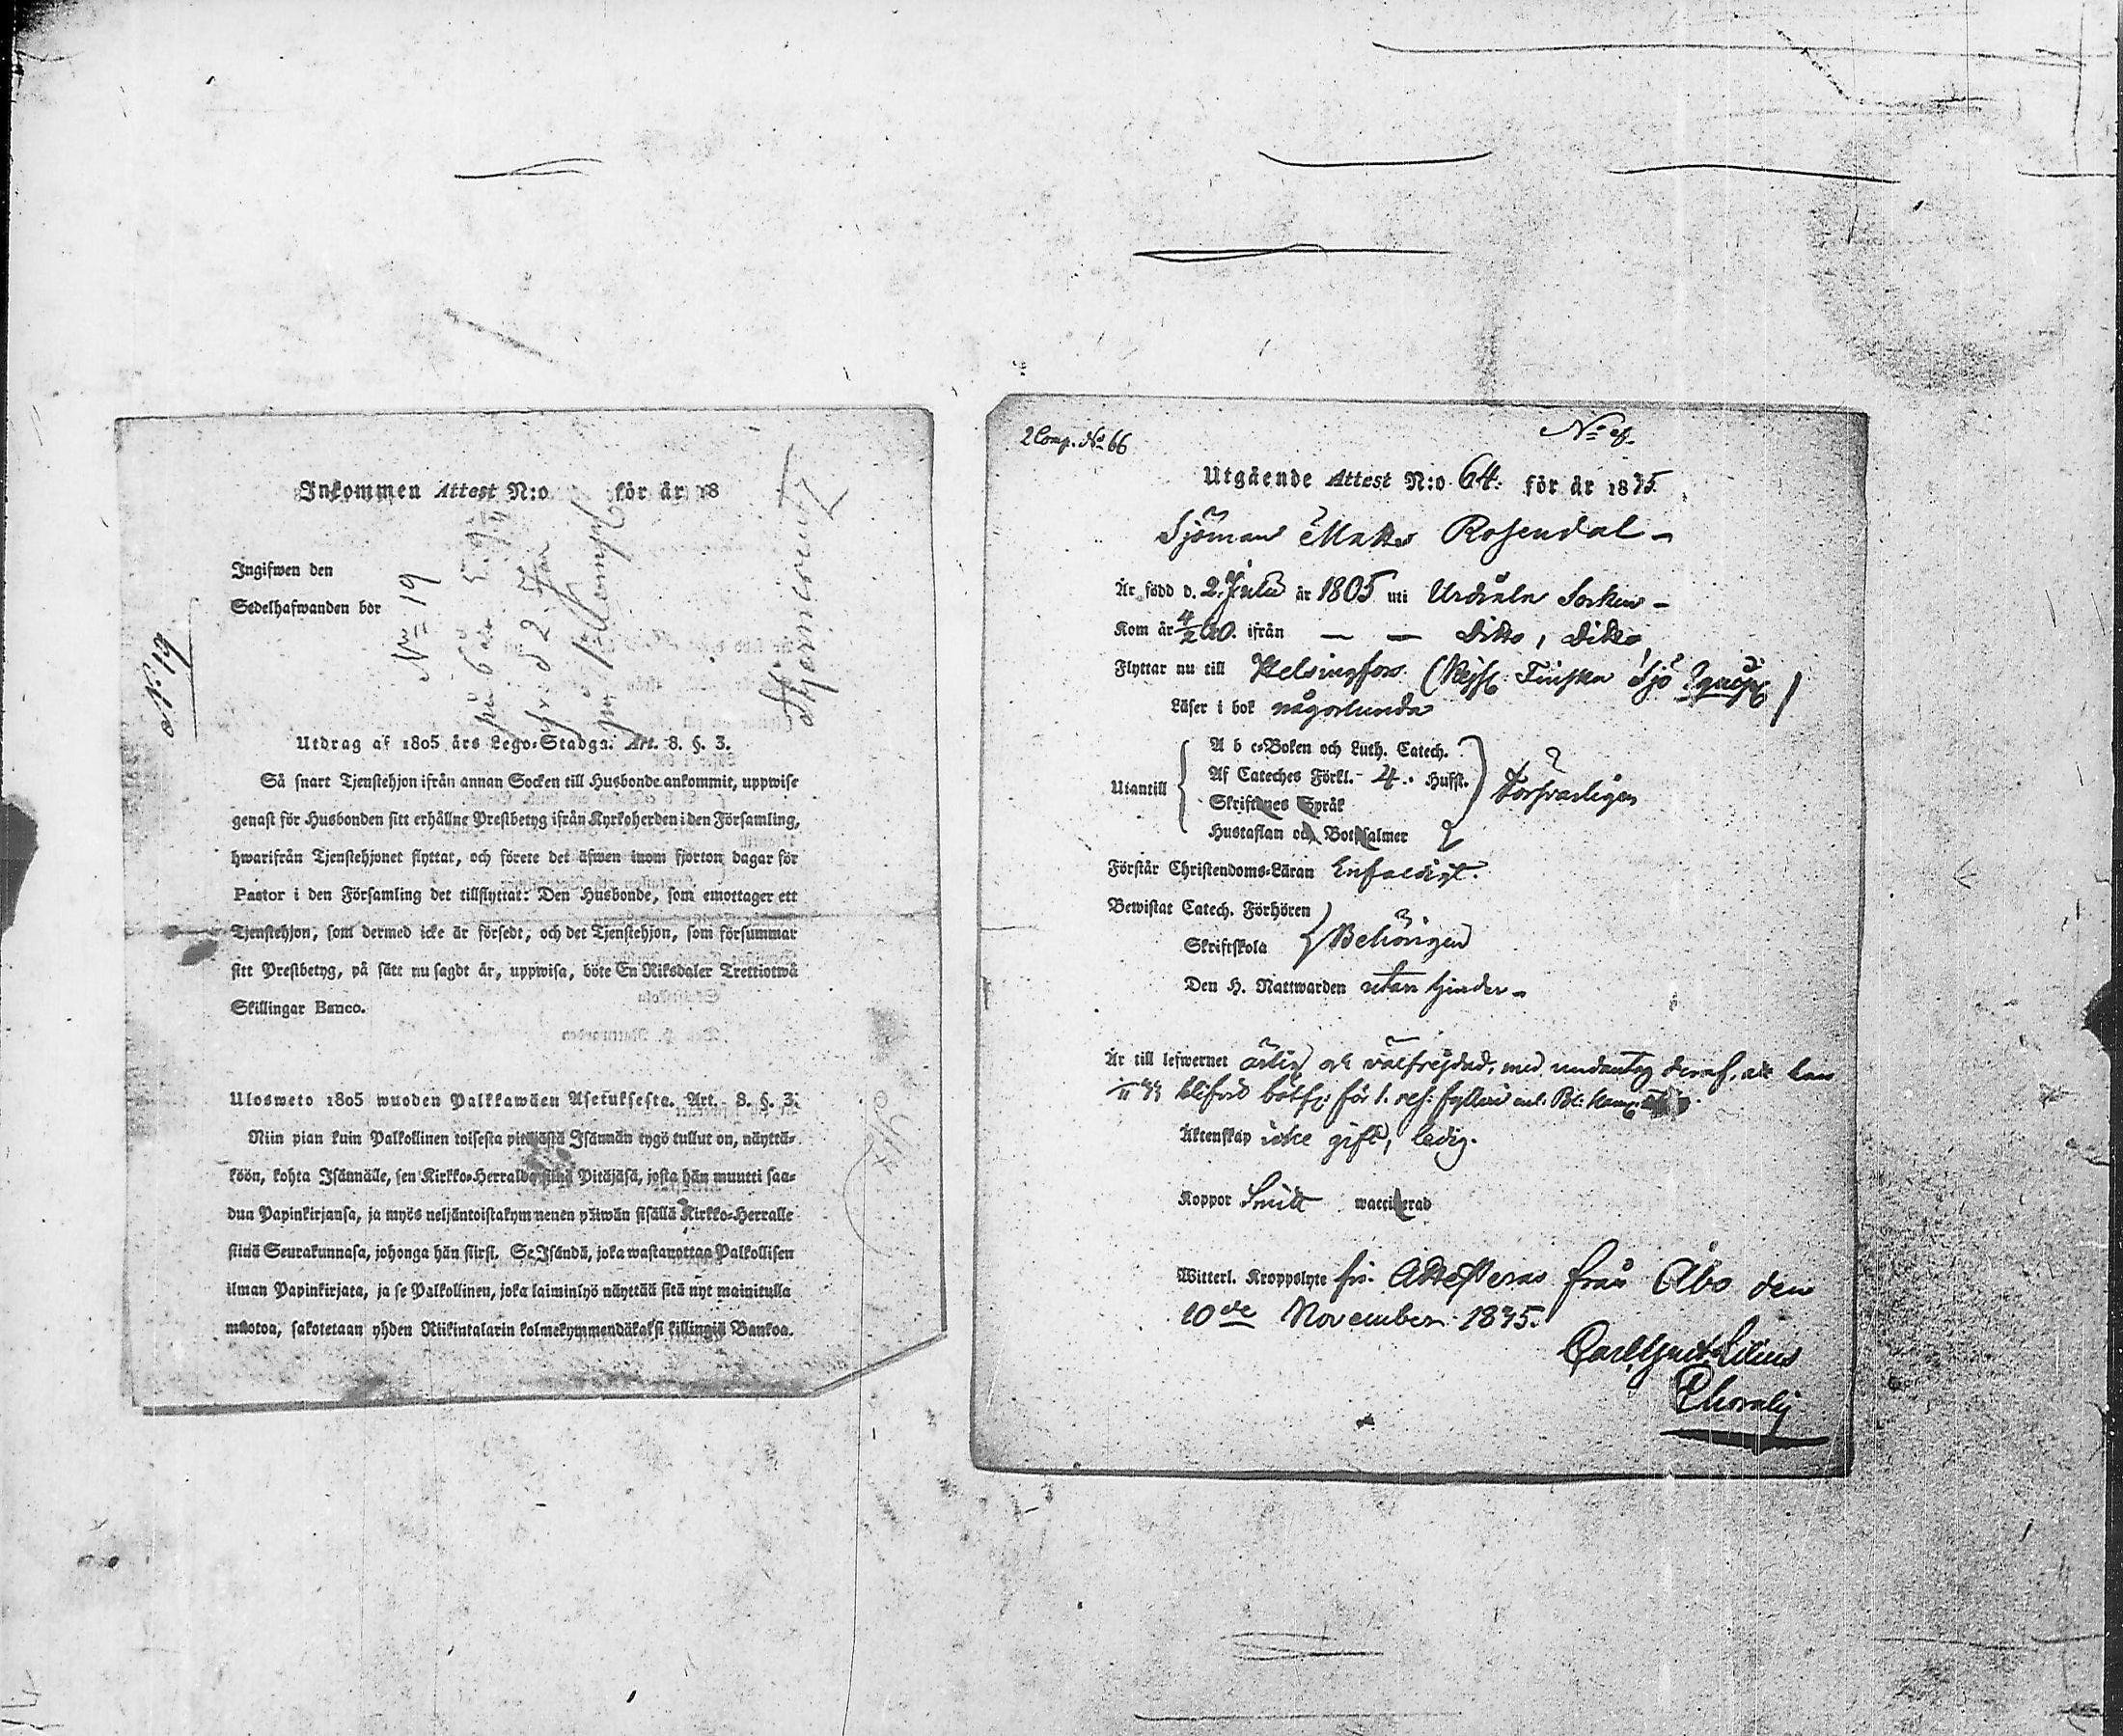 Inkommen Attest N:o för år 18
Ingifwen den
Sedelhafwanden bor
No 19
Utdrag af 1805 års Lego-Stadga. Art. 8. §. 3.
Så snart Tjenstehjon ifrån annan Socken till Husbonde ankommit, uppwise
genast för Husbonden sitt erhållne Prestbetyg ifrån Kyrkoherden i den Församling,
hwarifrån Tjenstehjonet flyttat, och förete det äfwen inom fjorton dagar för
Pastor i den Församling det tillflyttat: Den Husbonde, som emottager ett
Tjenstehjon, som dermed icke är försedt, och det Tjenstehjon, som försummar
sitt Prestbetyg, på sätt nu sagdt är, uppwisa, böte En Riksdaler Trettiotwå
Skillingar Banco.
Ulosweto 1805 wuoden Palkkawäen Asetuksesta. Art. 8. §. 3.
Niin pian kuin Palkollinen toisesta pitäjästä Isännän tygö tullut on, näyttä-
köön, kohta Isännälle, sen Kirkko-Herralda siinä Pitäjäsä, josta hän muutti saa-
dun Papinkirjansa, ja myös neljäntoistakymmenen päiwän sisällä Kirkko-Herralle
siinä Seurakunnasa, johonga hän siirsi. Se Isändä, joka wastanottaa Palkollisen
ilman Papinkirjata, ja se Palkollinen, joka laiminlyö näyttää sitä nyt mainitulla
muotoa, sakotetaan yhden Riikintalarin kolmekymmendäkaksi killingiä Bankoa.
2 Comp. No 66
Utgående Attest N:o 64. för år 1835.
Sjöman Matts Rosendal
Är född d. 2 Julii år 1805 uti Urdiala Socken
Kom år ifrån — — Ditto, Ditto,
Flyttar nu till Helsingfors (Kejs. Finska Sjö Equip.)
Läser i bok någorlunda
Utantill
A b c-Boken och Luth. Catech.
Af Cateches Förkl. 4. Hufst.
Skriftenes Språk
Hustaflan och Botpsalmer
Försvarligen
Förstår Christendoms-Läran Enfaldigt.
Bewistat Catech. Förhören
Skriftskola
Behörigen
Den H. Nattwarden utan hinder
Är till lefwernet ärlig och välfrejdad, med undantag deraf, att han
blifvit bötf. för 1. res. fylleri
Äktenskap icke gift, ledig.
Koppor Smitt waccinerad
Witterl. Kroppslyte fri. Attesteras från Åbo den
10de November 1835.